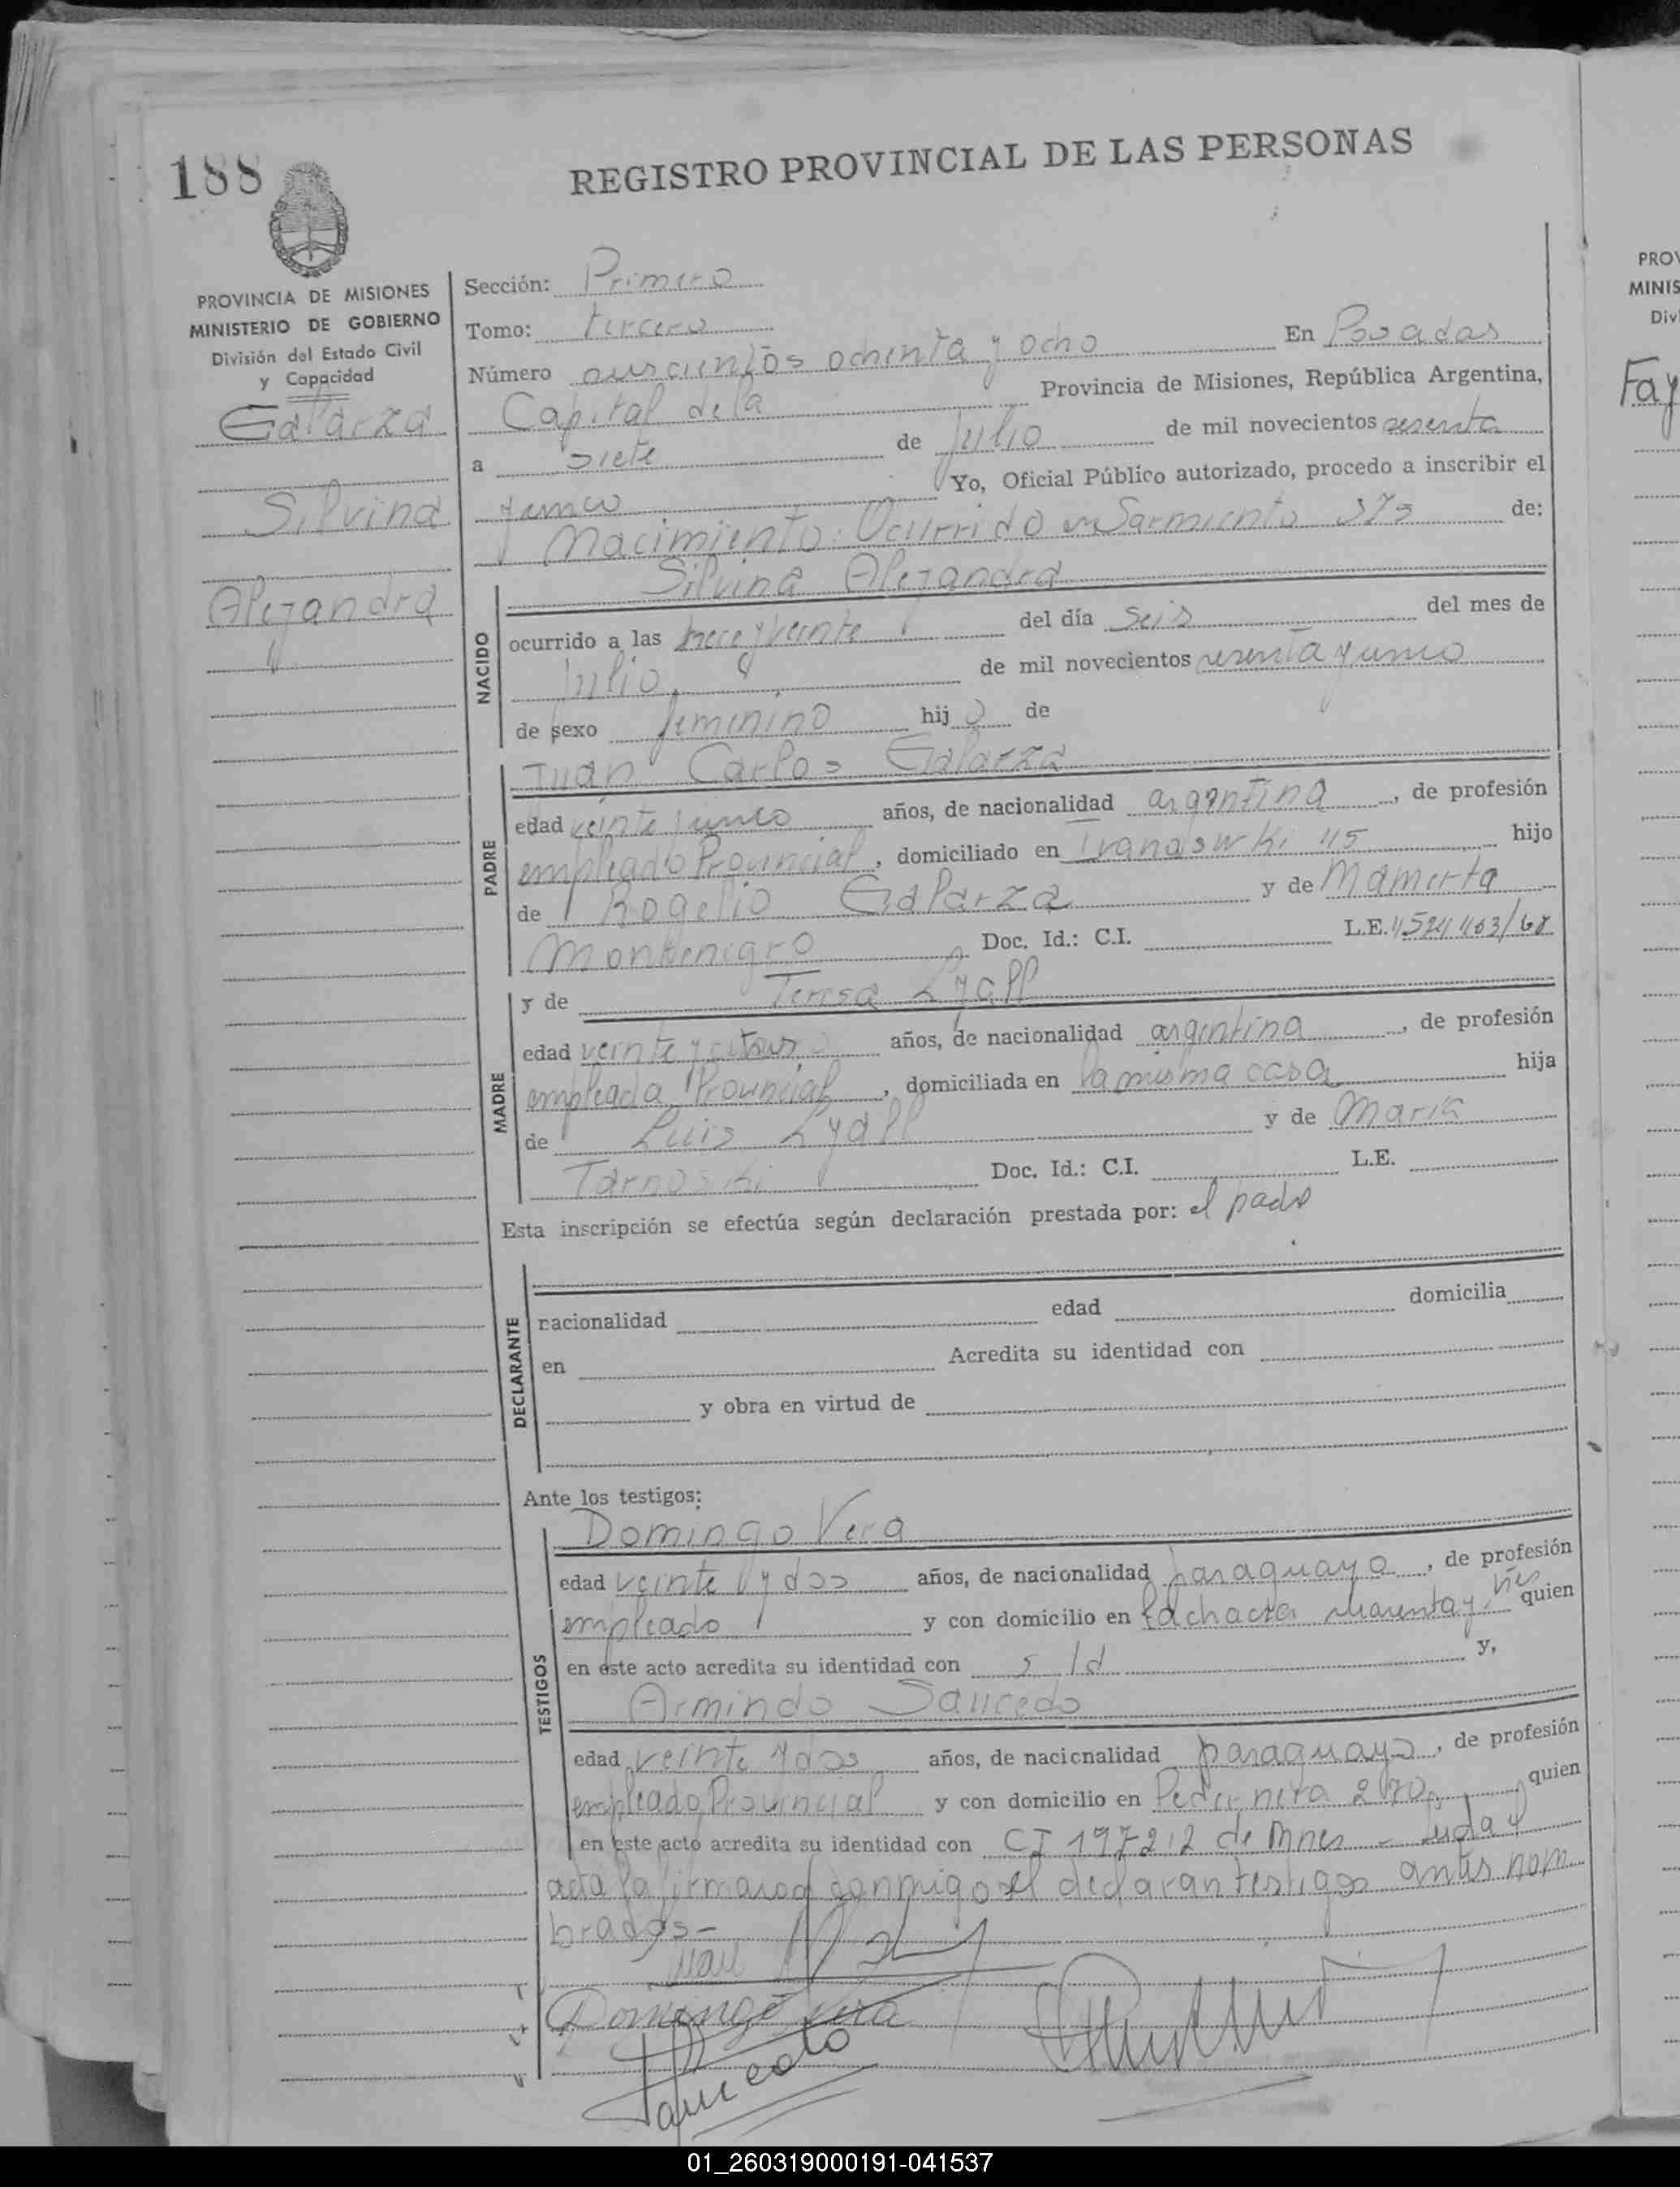 188
REGISTRO PROVINCIAL DE LAS PERSONAS
PROVINCIA DE MISIONES
MINISTERIO DE GOBIERNO
División del Estado Civil
y Capacidad
Galarza
Silvina
Alejandra
Sección: Primero
Tomo: tercero
Número ochenta y ocho En Posadas
Capital de la Provincia de Misiones, República Argentina,
a siete de Julio de mil novecientos sesenta
Yo, Oficial Público autorizado, procedo a inscribir el
Nacimiento: Ocurrido en Sarmiento de:
Silvina Alejandra
NACIDO
ocurrido a las trece y veinte del día seis del mes de
Julio, de mil novecientos sesenta y
de sexo femenino hij de
PADRE
Juan Carlos Galarza
edad veinte años, de nacionalidad argentina, de profesión
empleado Provincial, domiciliado en hijo
de Rogelio Galarza y de Mamerta
Montenegro Doc. Id.: C.I. L.E.
MADRE
y de Teresa Lyall
edad veinte y años, de nacionalidad argentina, de profesión
empleada Provincial, domiciliada en la misma casa hija
de Luis Lyall y de María
Tarnoski Doc. Id.: C.I. L.E.
Esta inscripción se efectúa según declaración prestada por: el padre
DECLARANTE
nacionalidad edad domicilia
en Acredita su identidad con
y obra en virtud de
Ante los testigos:
TESTIGOS
Domingo Vera
edad veinte y dos años, de nacionalidad paraguaya, de profesión
empleado y con domicilio en la chacra y tres quien
en este acto acredita su identidad con y,
Armindo Saucedo
edad veinte y dos años, de nacionalidad paraguaya, de profesión
empleado Provincial y con domicilio en Pedernera quien
en este acto acredita su identidad con CI 197212 de Mnes -
acta la firmaron conmigo el testigos antes nom
brados-
Juan
Domingo Vera
Saucedo
PROV
MINIS
Div
Fay
01_260319000191-041537